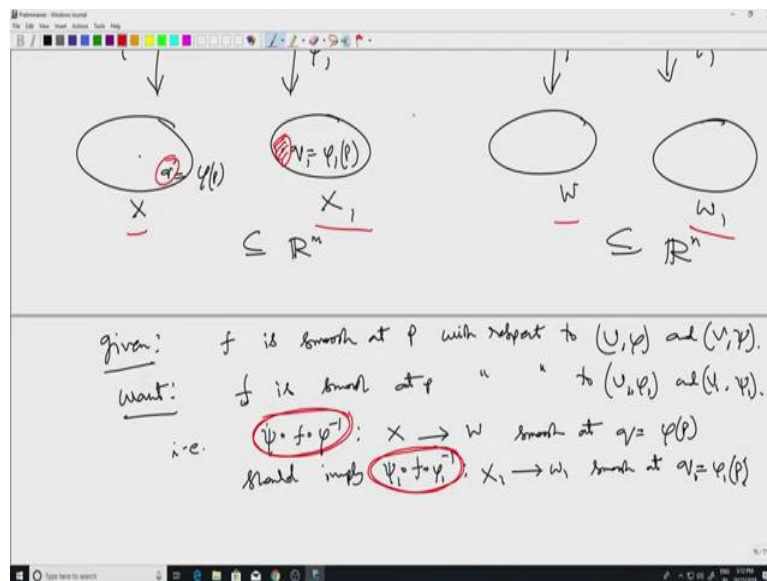 Preliminaries - Windows Journal
File Edit View Insert Actions Tools Help
φ₁
q = φ(p)
q₁ = φ₁(p)
X
X₁
W
W₁
⊆ ℝᵐ
⊆ ℝⁿ
given: f is smooth at p with respect to (U,φ) and (V,ψ).
want: f is smooth at p " " to (U₁,φ₁) and (V₁,ψ₁).
i.e. ψ∘f∘φ⁻¹: X → W smooth at q = φ(p)
should imply ψ₁∘f∘φ₁⁻¹: X₁ → W₁ smooth at q₁ = φ₁(p)
Type here to search
ENG 3:12 PM